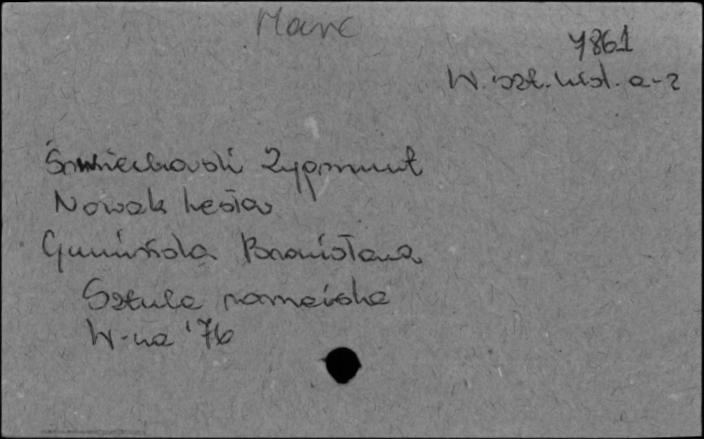 7861
W. szt. wid. a-z
Świechowski Zygmunt
Nowak Lesław
Gumińska Bronisława
Sztuka romańska
W-wa '76